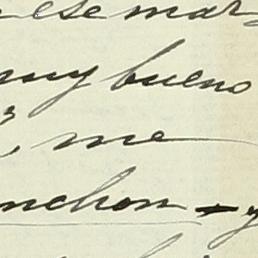 ese mar
muy bueno
, me
nchon - y